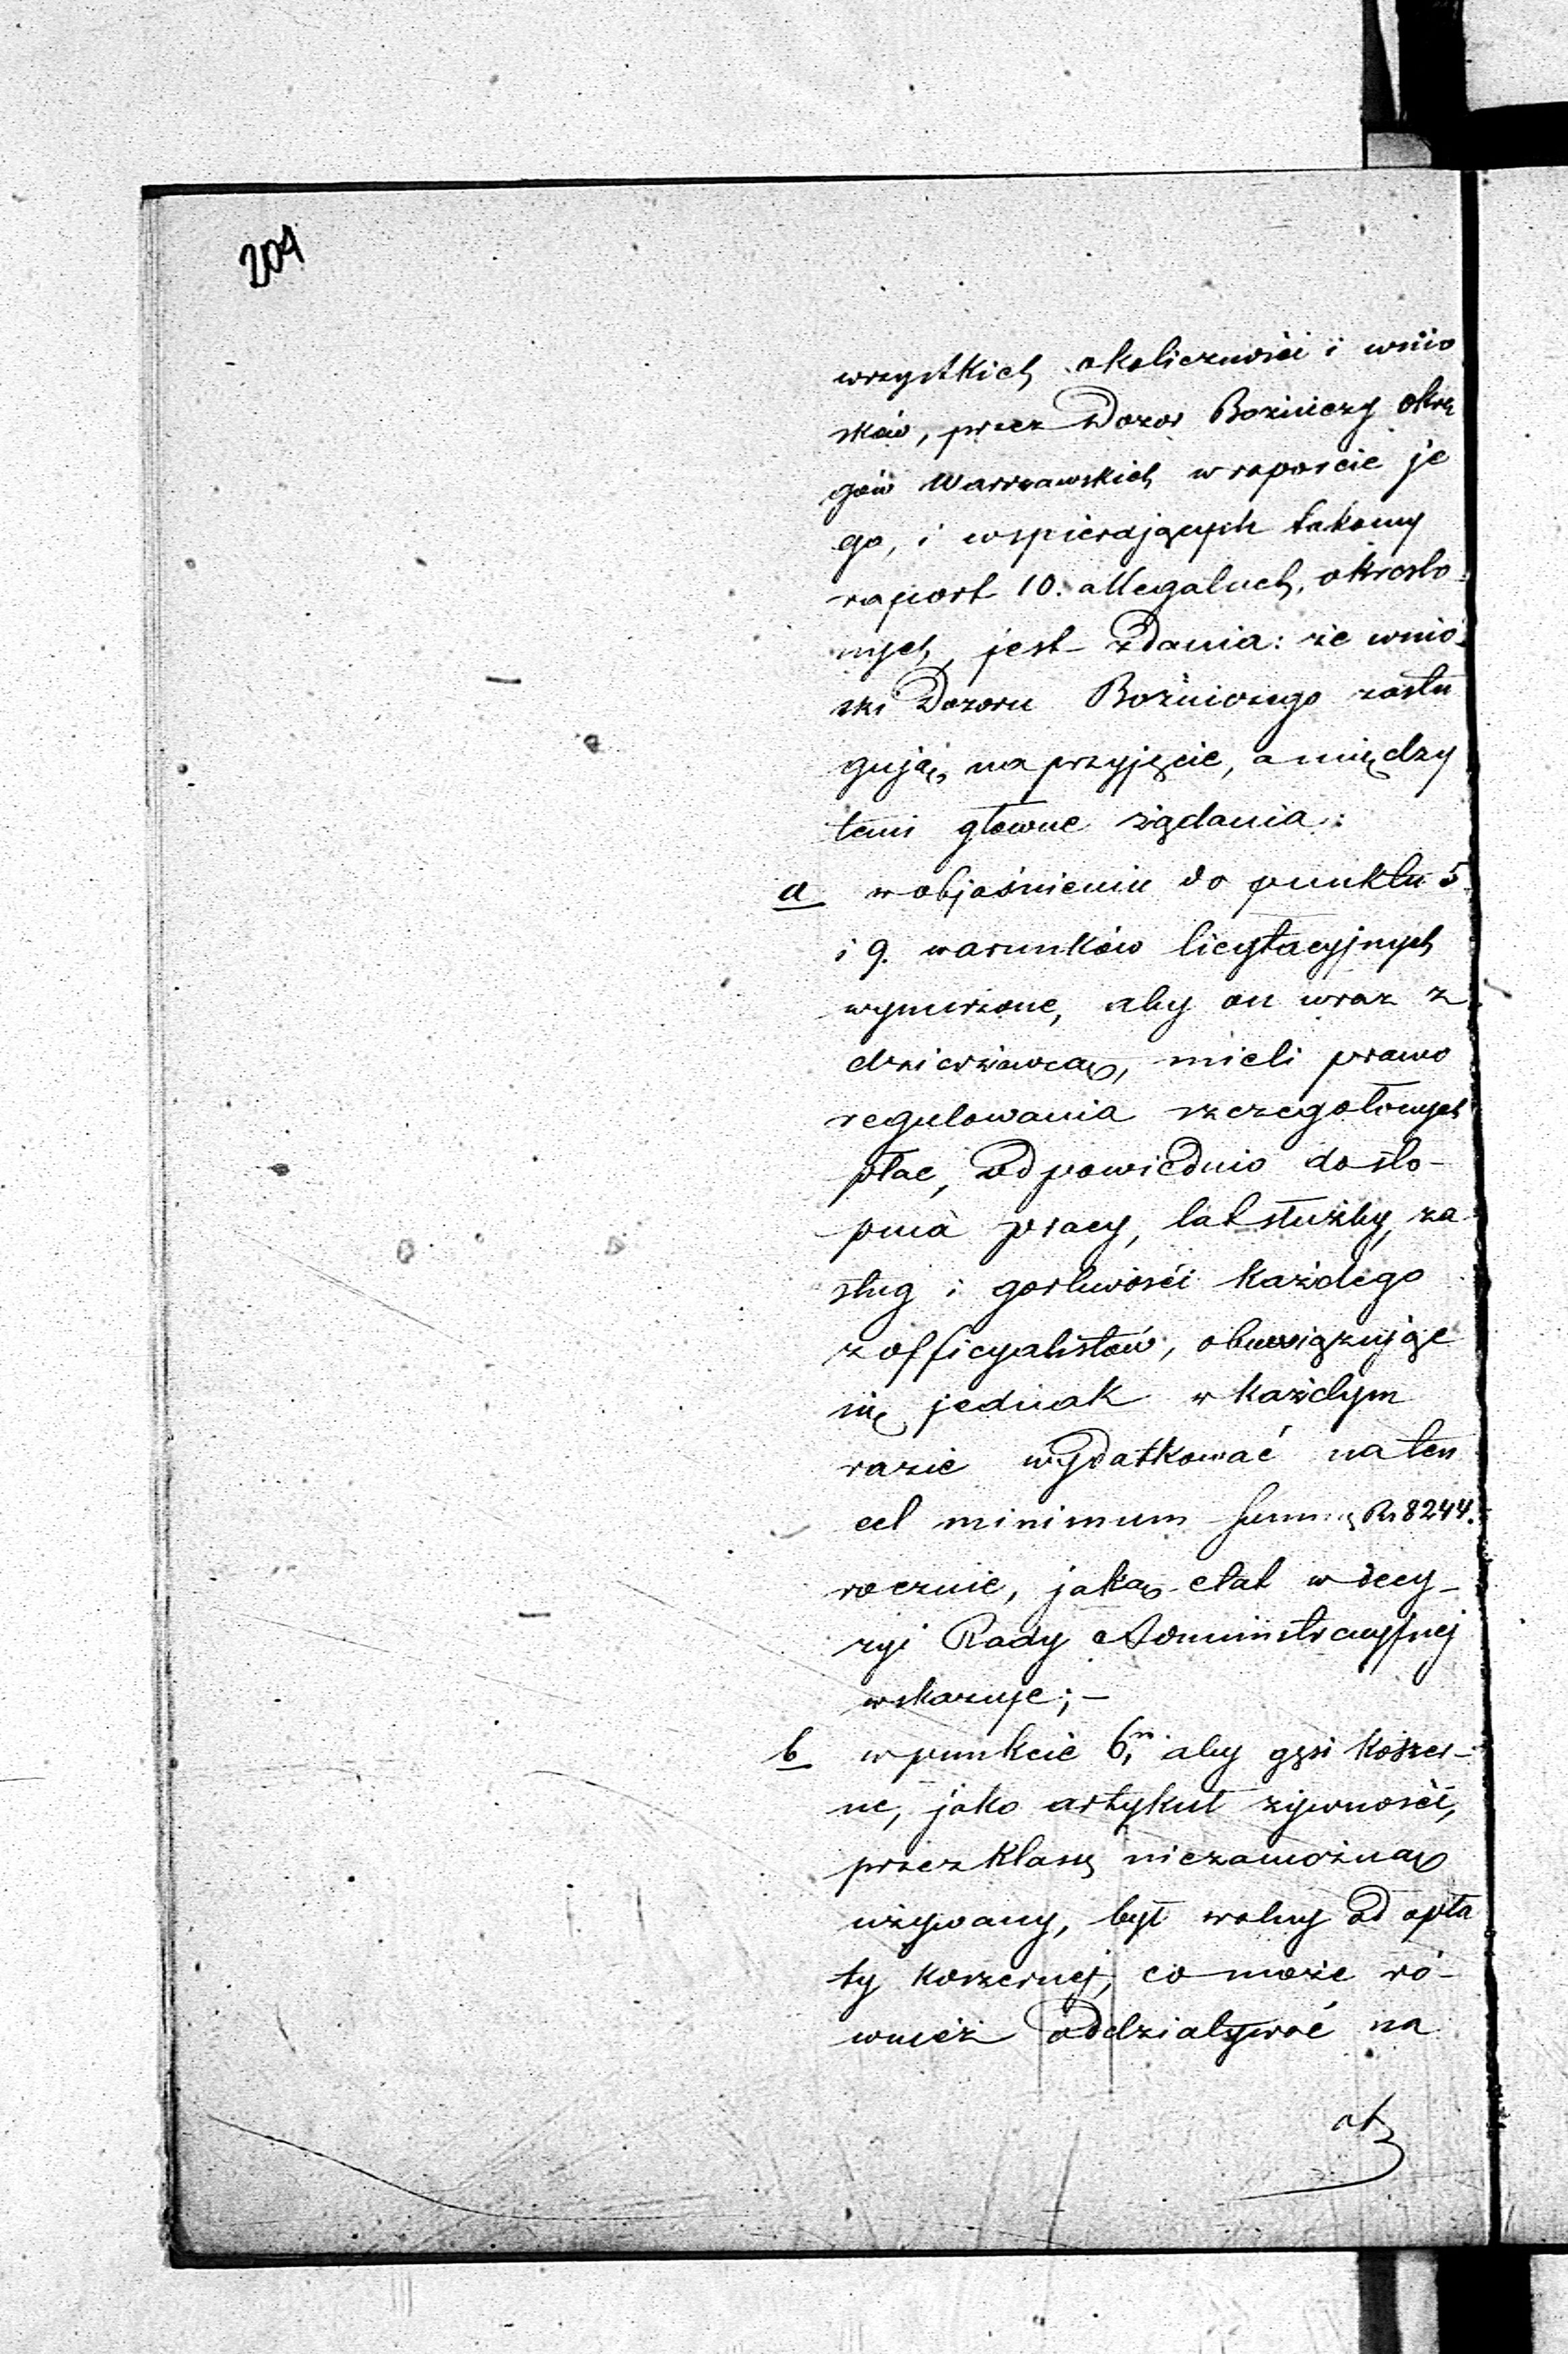 204
wszystkich okoliczności i wnio
sków, przez Dozor Bożniczy okrę
gów Warszawskich w raporcie je
go, i wspierających takowy
raport 10. allegatach, okreslo-
nych, jest zdania: że wnio-
ski Dozoru Bożniczego zasłu
gują, na przyjęcie, a między
temi głowne żądania:
a w objaśnieniu do punktu 5
i 9. warunków licytacyjnych
wymierzone, aby on wraz z
dzierżawcą, mieli prawo
regulowania szczegołowych
płac, odpowiednio do sto-
pnia pracy, lat służby, za
sług i gorliwości każdego
z officyalistów, obowiązując
się jednak w każdym
razie wydatkować na ten
cel minimum Summę Rs 8244.
rocznie, jaką etat w decy-
zyi Rady Administracyjnej
wskazuje; -
b w punkcie 6m, aby gęsi koszer-
ne, jako artykuł żywności,
przez klassę niezamożną
używany, był wolny od opła
ty koszernej, co może ró-
wnież oddziaływać na